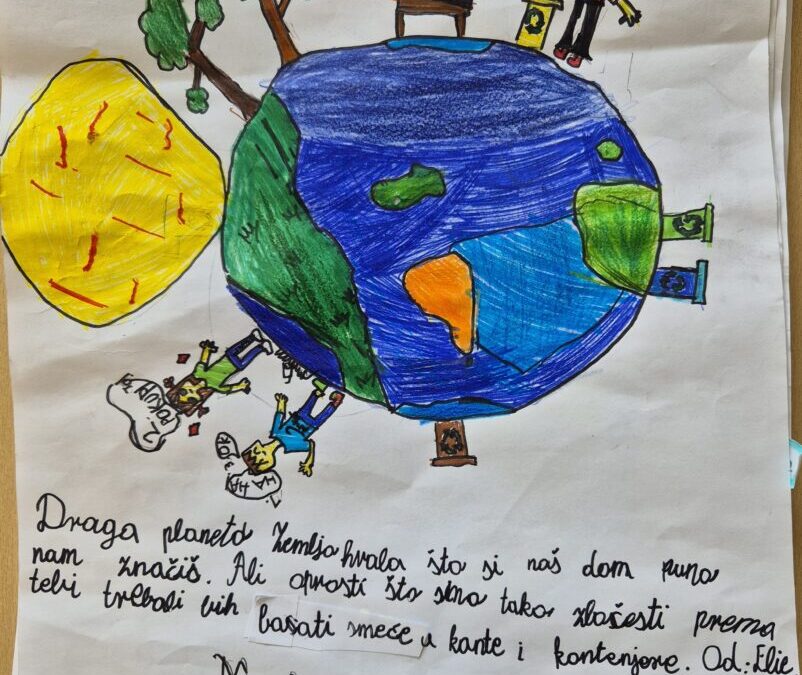 HA HA
Draga planeto Zemljo hvala što si naš dom puno
nam značiš. Ali oprosti što smo tako zločesti prema
tebi trebali bih bacati smeće u kante i kontenjere. Od: Elie